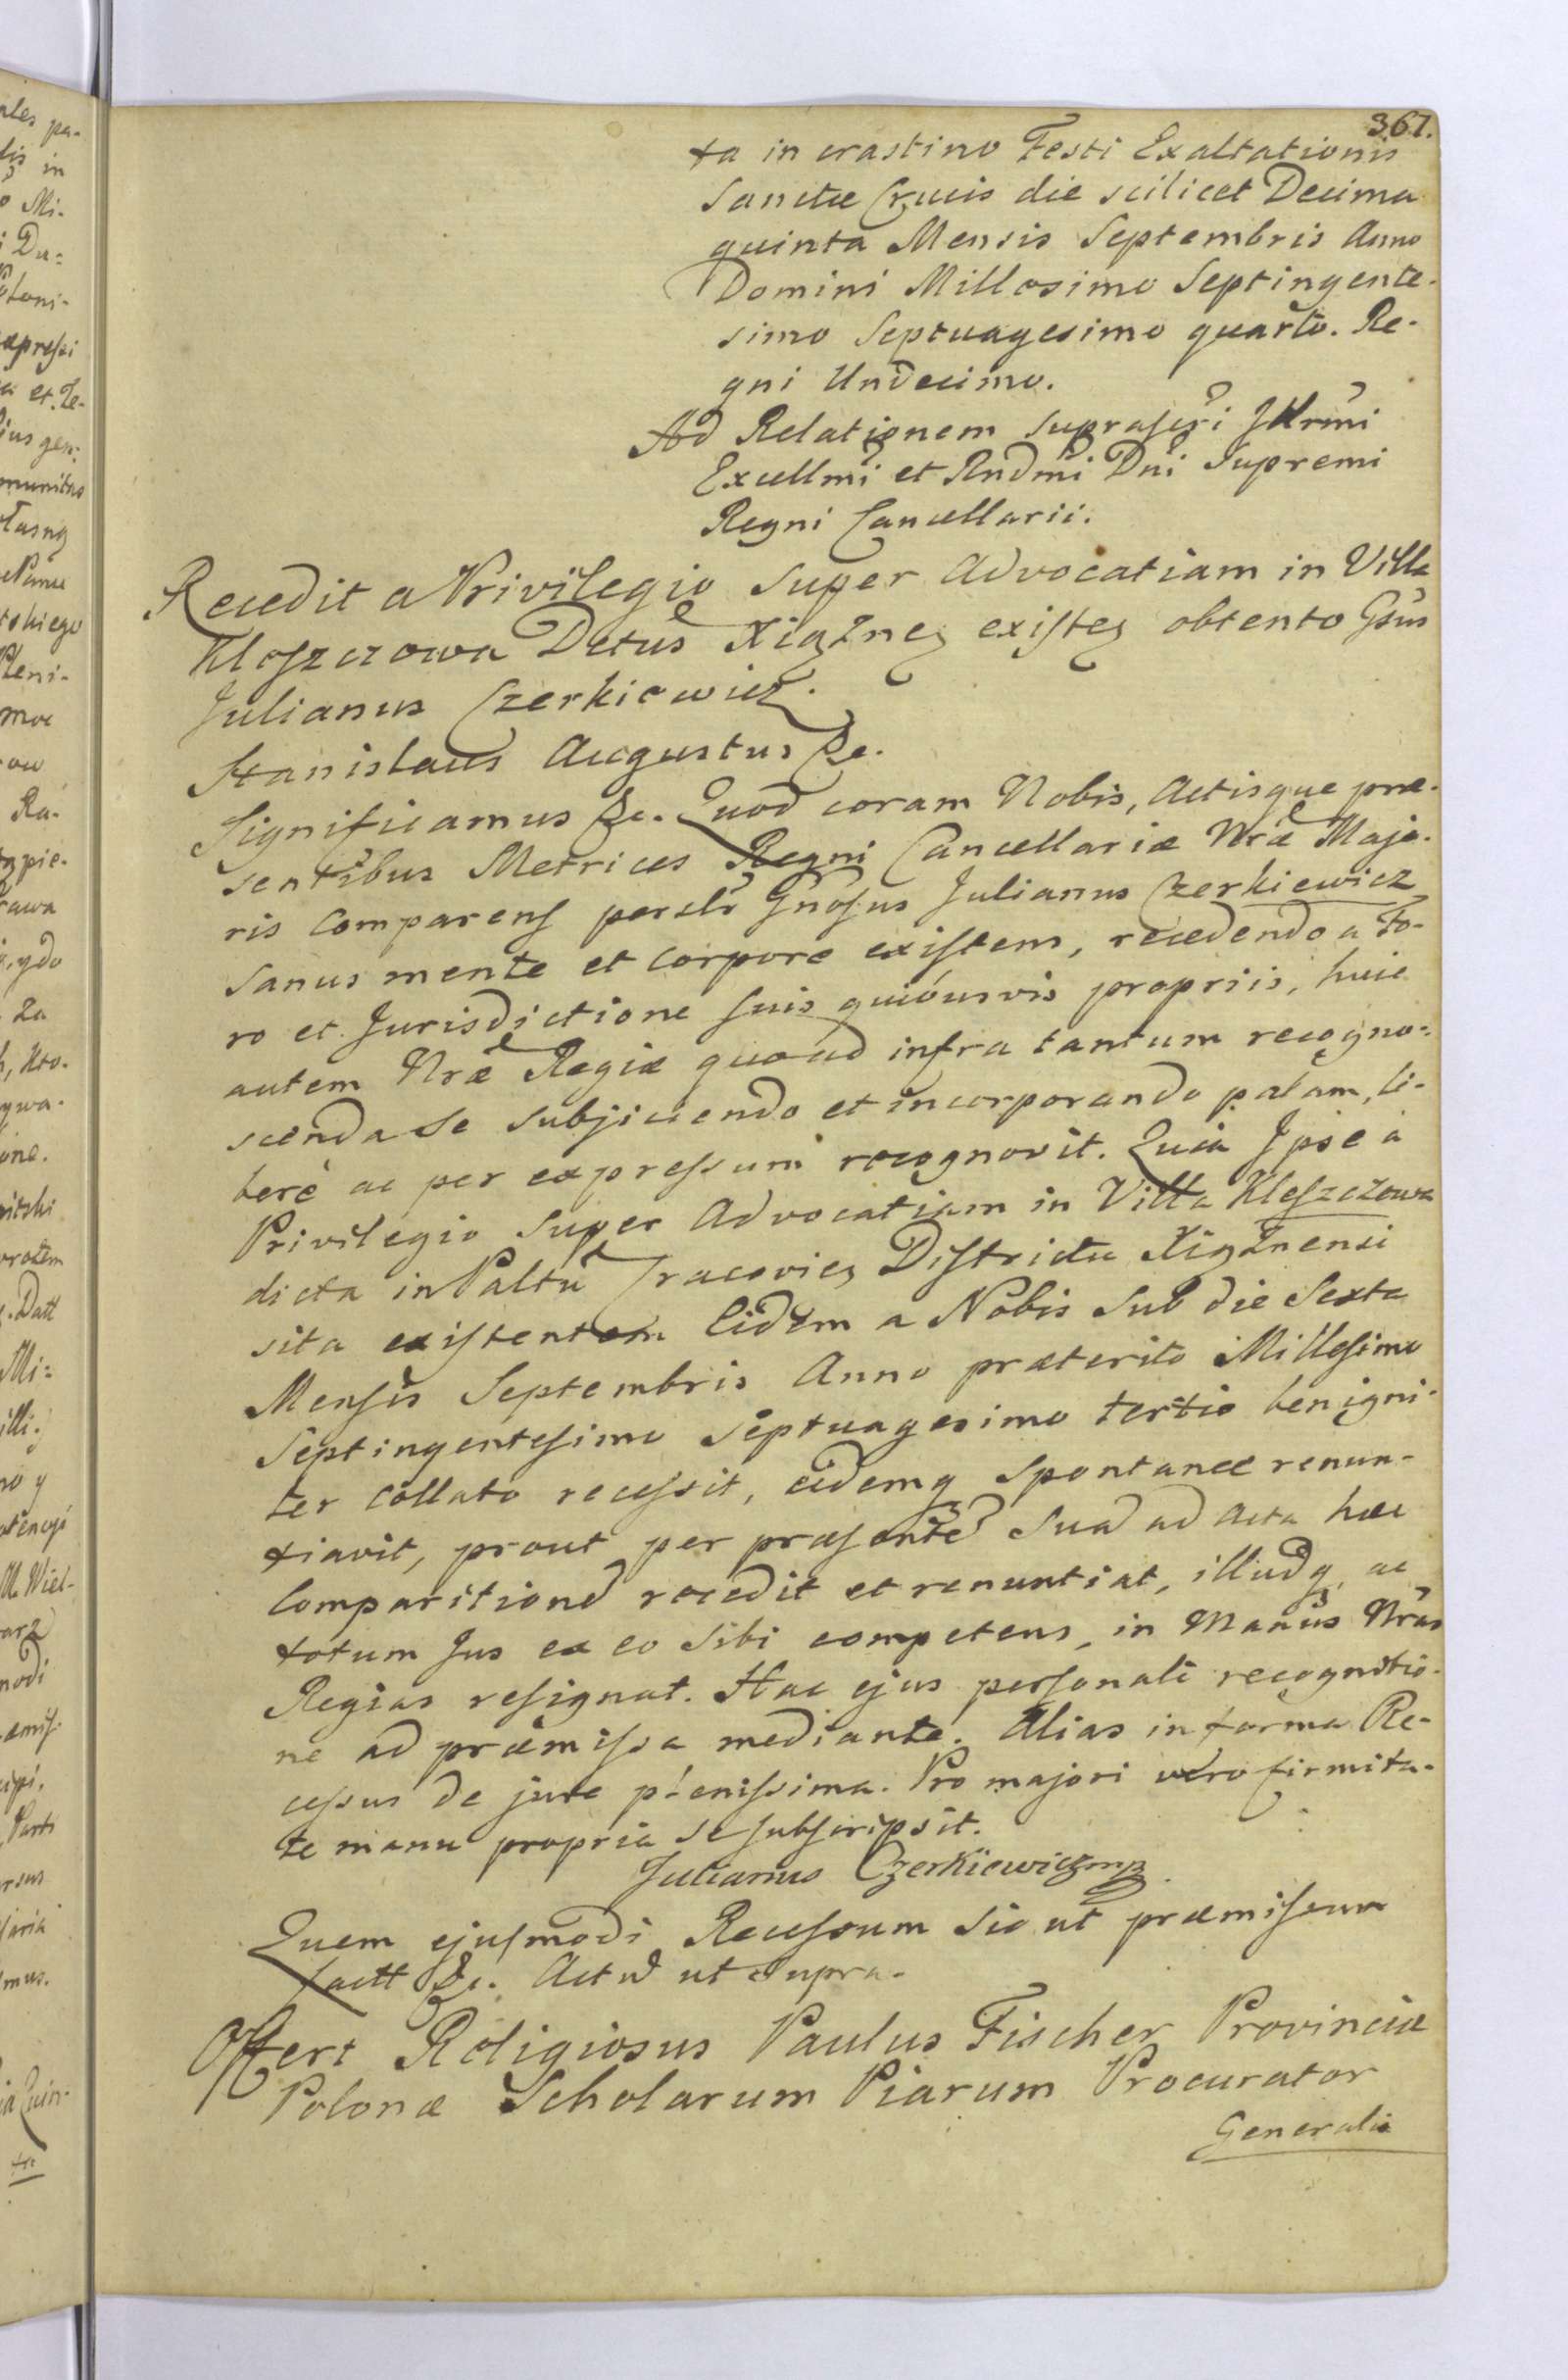 367.
ta in crastino Festi Exaltationis
Sanctæ Crucis die scilicet Decima
quinta Mensis Septembris Anno
Domini Millesimo Septingente-
simo Septuagesimo quarto. Re-
gni Undecimo.
Ad Relationem suprascri Jllrmi
Excellmi et Rndmi Dni Supremi
Regni Cancellarii.
Recedit a Privilegio super Advocatiam in Villa
Kleszczowa Dctus Xiążneȝ existeȝ obtento Gsus
Julianus Czerkiewicz.
Stanislaus Augustus &c.
Significamus &c. Quod coram Nobis, Actisque præ-
sentibus Metrices Regni Cancellariæ Nræ Majo-
ris Comparens perslr Gnosus Julianus Czerkiewicz
Sanus mente et corpore existens, recedendo a Fo-
ro et Jurisdictione suis quibusvis propriis, huic
autem Nræ Regiæ quoad infra tantum recogno-
scenda se subjiciendo et incorporando palam, li-
berè ac per expressum recognovit. Quia Ipse à
Privilegio super Advocatiam in Villa Kleszczowa
dicta in Paltu Cracovieȝ Districtu Xiążnensi
sita existentem Eidem a Nobis sub die Sexta
Mensis Septembris Anno præterito Millesimo
Septingentesimo Septuagesimo tertio benigni-
ter collato recessit, eidemq spontanee renun-
tiavit, prout per præsente Sua ad Acta hæc
Comparitione recedit et renuntiat, illudq ac
totum Jus ex eo sibi competens, in Manus Nras
Regias resignat. Hac ejus personali recognitio-
ne ad præmissa mediante. Alias in forma Re-
cessus de jure plenissima. Pro majori vero firmita-
te manu propria se subscripsit.
Julianus Czerkiewicz mp
Quem ejusmodi Recessum sic ut præmissum
factt &c. Actu ut supra.
Offert Religiosus Paulus Fischer Provinciæ
Polonæ Scholarum Piarum Procurator
Generalis